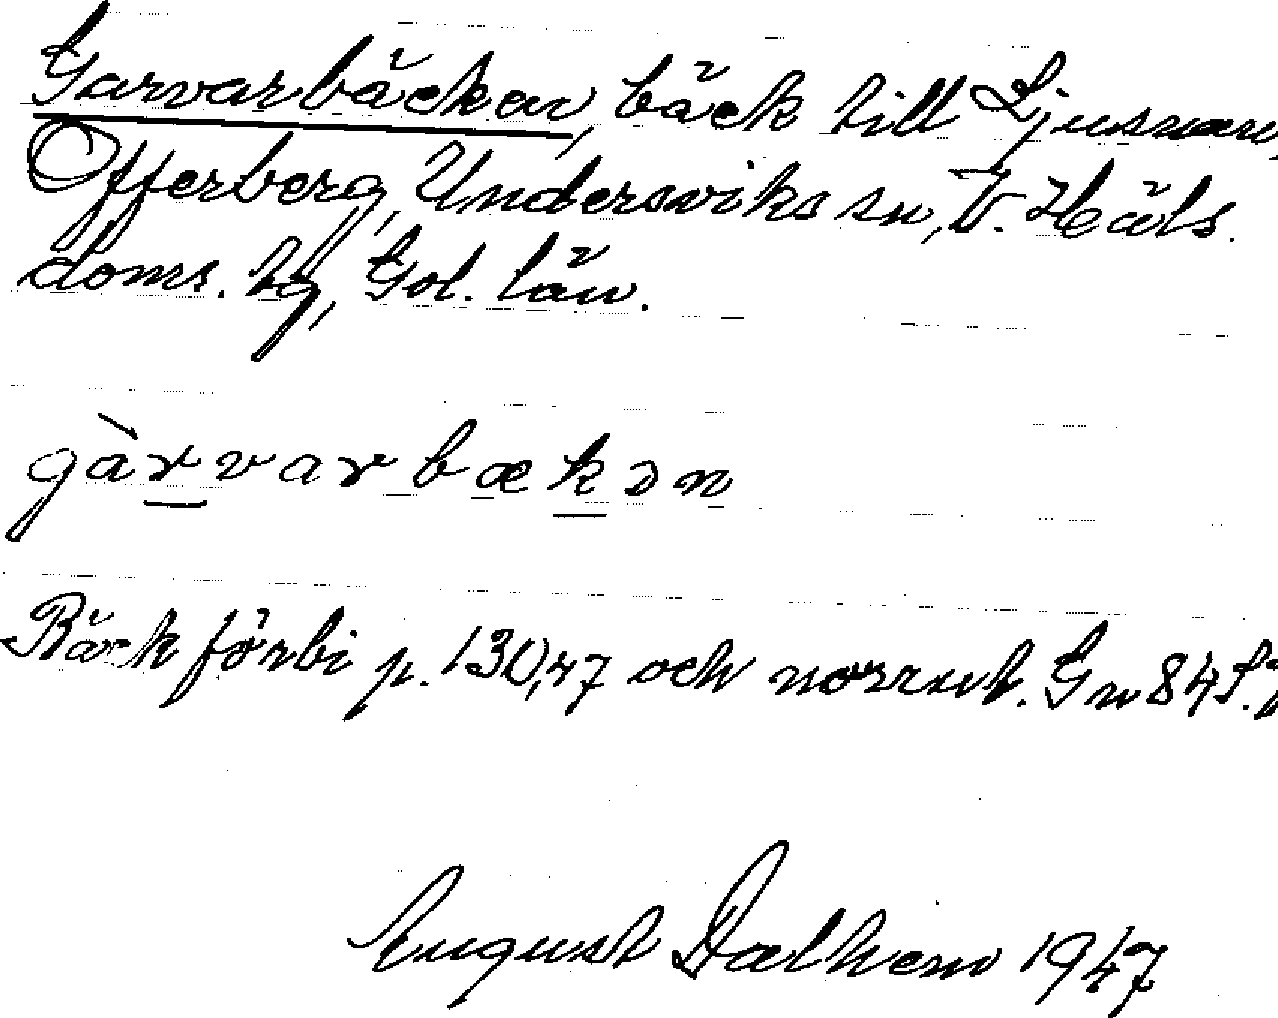 Garvarbäcken, bäck till Ljusnan,
Offerberg, Undersviks sn, V. Häls.
doms. tg, Gvl. län.
gàrvarbækən
Bäck förbi p. 130,47 och norrut. Gn 84 S.
August Dalhem 1947